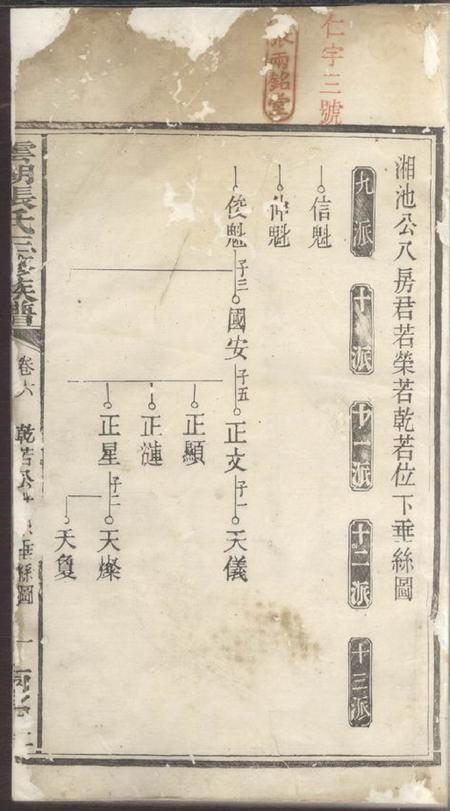 仁字三號
雨銘堂
湘池公八房君若榮若乾若位下垂絲圖
九派
十派
十一派
十二派
十三派
信魁
魁
俊魁
子三
國安
子五
正文
子一
天儀
正顯
正漣
正星
子二
天燦
天夐
張氏三修族譜
卷六
乾若公
垂絲圖
一